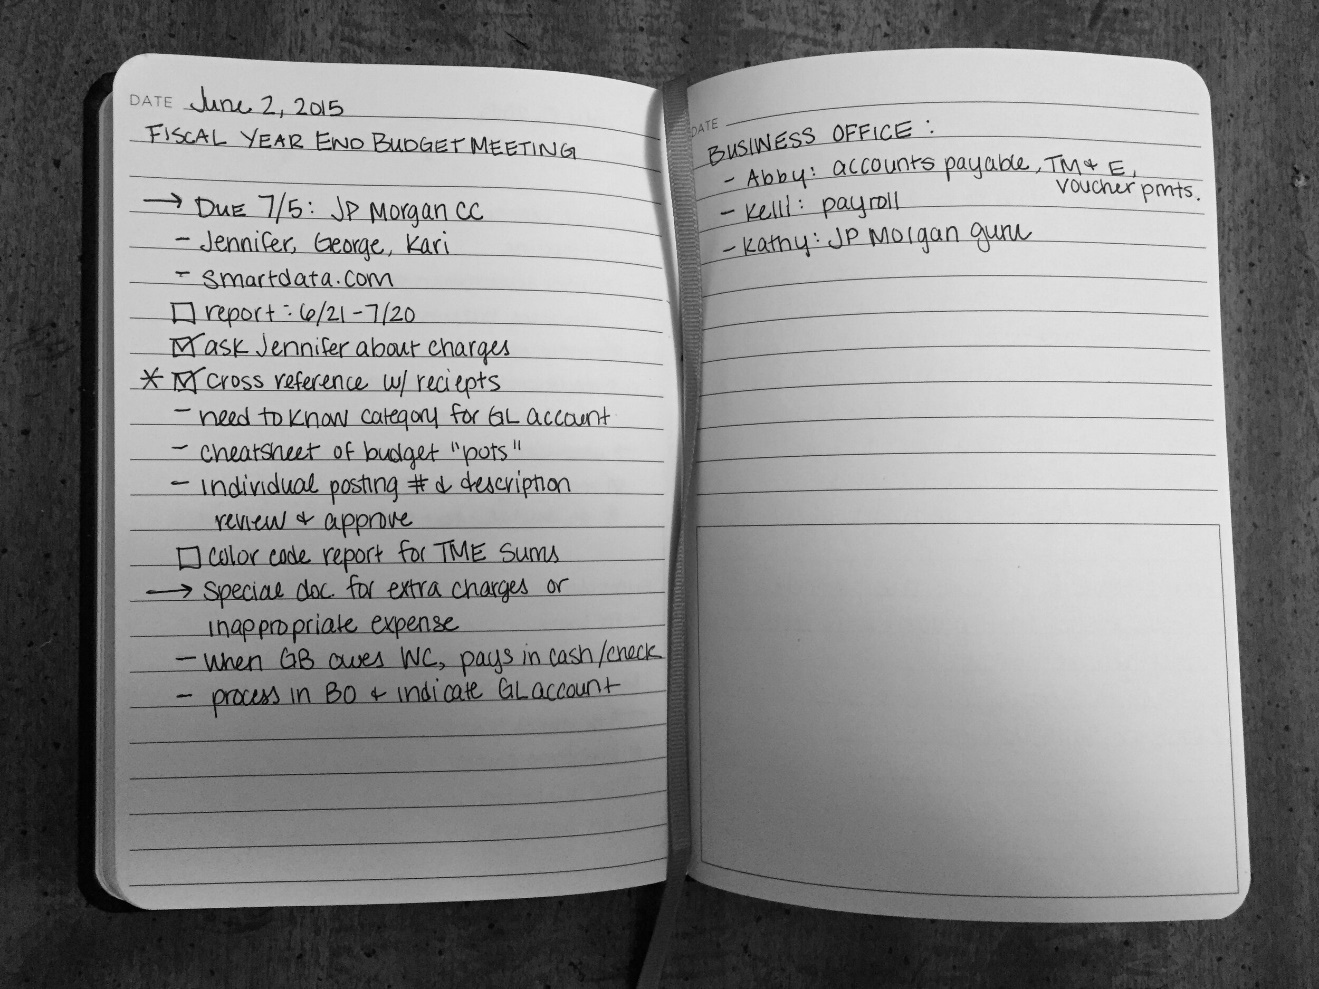 DATE June 2, 2015
FISCAL YEAR END BUDGET MEETING
→ DUE 7/5: JP Morgan CC
- Jennifer, George, Kari
- smartdata.com
☐ report: 6/21-7/20
☑ ask Jennifer about charges
* ☑ cross reference w/ reciepts
- need to know category for GL account
- cheatsheet of budget "pots"
- individual posting # & description
review & approve
☐ color code report for TME Sums
→ Special doc for extra charges or
inappropriate expense
- when GB owes WC, pays in cash/check
- process in BO & indicate GL account
DATE
BUSINESS OFFICE:
- Abby: accounts payable, TM & E,
voucher pmts.
- Kelli: payroll
- Kathy: JP Morgan guru